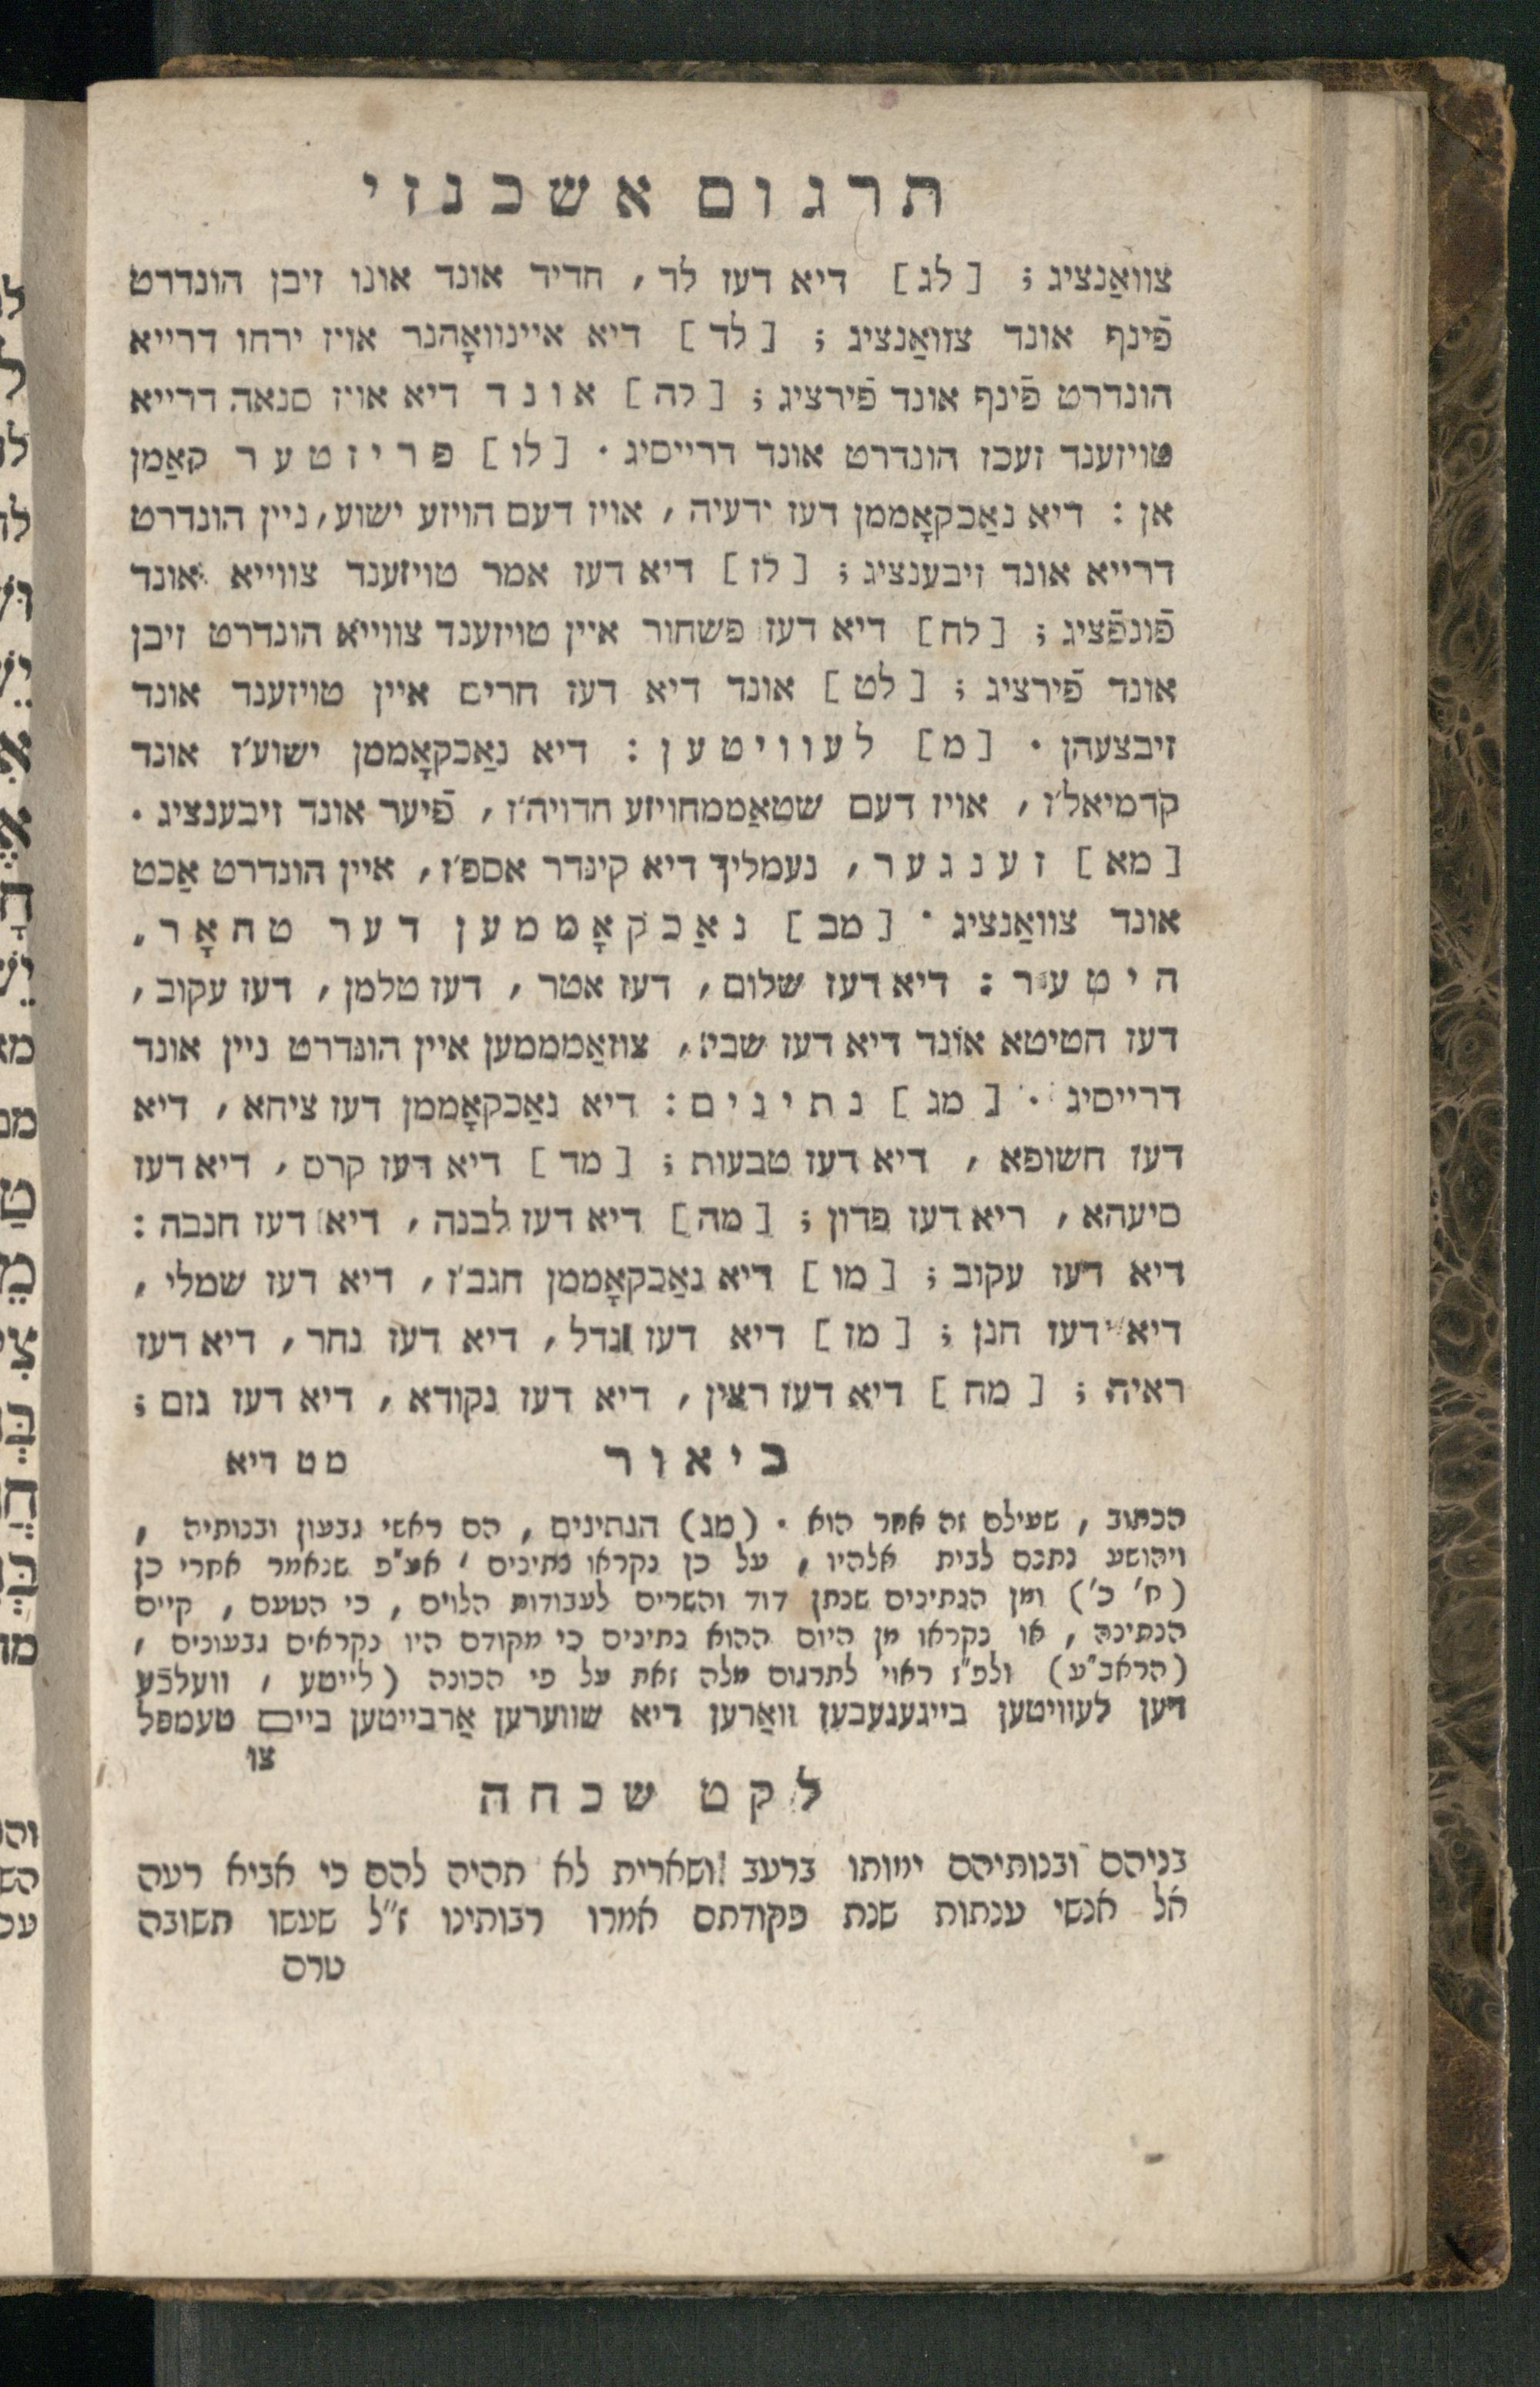 תרגום אשכנזי
צוואַנציג ; [לג] דיא דעז לד, חדיד אונד אונו זיבן הונדרט
פֿינף אונד צוואַנציג ; [לד] דיא איינוואָהנר אויז ירחו דרייא
הונדרט פֿינף אונד פֿירציג ; [לה] אונד דיא אויז סנאה דרייא
טויזענד זעכז הונדרט אונד דרייסיג . [לו] פריזטער קאַמן
אן : דיא נאַכקאָממן דעז ידעיה, אויז דעם הויזע ישוע, ניין הונדרט
דרייא אונד זיבענציג ; [לז] דיא דעז אמר טויזענד צווייא אונד
פֿונפֿציג ; [לח] דיא דעז פשחור איין טויזענד צווייא הונדרט זיבן
אונד פֿירציג ; [לט] אונד דיא דעז חרים איין טויזענד אונד
זיבצעהן . [מ] לעוויטען : דיא נאַכקאָממן ישוע'ז אונד
קדמיאל'ז, אויז דעם שטאַממהויזע הדויה'ז, פֿיער אונד זיבענציג .
[מא] זענגער, נעמליך דיא קינדר אספ'ז, איין הונדרט אַכט
אונד צוואַנציג . [מב] נאַכקאָממען דער טהאָר,
היטער : דיא דעז שלום, דעז אטר, דעז טלמן, דעז עקוב,
דעז חטיטא אונד דיא דעז שבי, צוזאַמממען איין הונדרט ניין אונד
דרייסיג . [מג] נתינים : דיא נאַכקאָממן דעז ציחא, דיא
דעז חשופא, דיא דעז טבעות ; [מד] דיא דעז קרס, דיא דעז
סיעהא, ריא דעז פדון ; [מה] דיא דעז לבנה, דיא דעז חגבה :
דיא דעז עקוב ; [מו] דיא נאַכקאָממן חגב'ז, דיא דעז שמלי,
דיא דעז חנן ; [מז] דיא דעז גדל, דיא דעז גחר, דיא דעז
ראיה ; [מח] דיא דעז רצין, דיא דעז נקודא, דיא דעז גזם ;
ביאור מט דיא
הכתוב, שעילם זה אחר הוא . (מג) הנתינים, הם ראשי גבעון ובנותיה,
ויהושע נתנם לבית אלהיו, על כן נקראו נתינים, אע"פ שנאמר אחרי כן
(ח' כ') ומן הנתינים שנתן דוד והשרים לעבודות הלוים, כי הטעם, קיים
הנתינה, או נקראו מן היום ההוא נתינים כי מקודם היו נקראים גבעונים,
(הראב"ע) ולפ"ז ראוי לתרגום מלה זאת על פי הכונה (לייטע, וועלכֿע
דען לעוויטען בייגעגעבען וואַרען דיא שווערען אַרבייטען ביים טעמפל
צו
לקט שכחה
בניהם ובנותיהם ימותו ברעב ושארית לא תהיה להם כי אביא רעה
אל אנשי ענתות שנת פקודתם אמרו רבותינו ז"ל שעשו תשובה
טרם